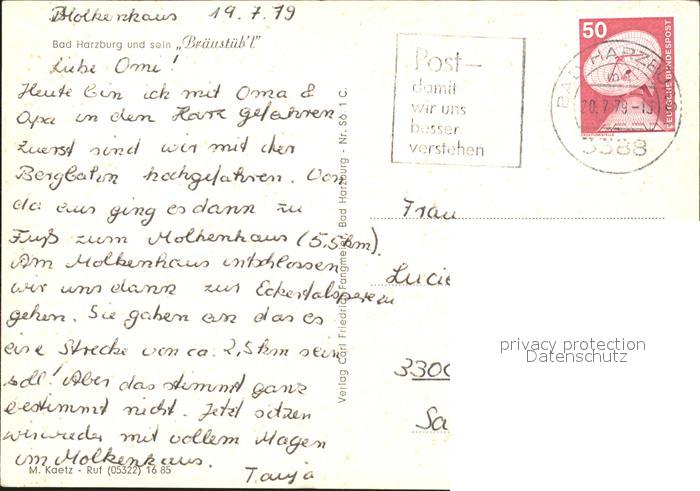 Molkenhaus 19.7.79
Bad Harzburg und sein „Bräustüb'l"
Liebe Omi!
Heute bin ich mit Oma &
Opa in den Harz gefahren
zuerst sind wir mit der
Bergbahn hochgefahren. Von
da aus ging es dann zu
Fuß zum Molkenhaus (5,5km).
Am Molkenhaus entschlossen
wir uns dann zur Eckertalsperre zu
gehen. Sie gaben an das es
eine Strecke von ca. 2,5km sein
soll! Aber das stimmt ganz
bestimmt nicht. Jetzt sitzen
wir wieder mit vollem Magen
im Molkenhaus.
Tanja
M. Kaetz - Ruf (05322) 16 85
Verlag Carl Friedrich Fangmeier, Bad Harzburg - Nr. Sö. 1 C.
Post-
damit
wir uns
besser
verstehen
50
DEUTSCHE BUNDESPOST
BAD HARZB
20.7.79-15
3388
Frau
Lucie
3300
Sa
privacy protection
Datenschutz